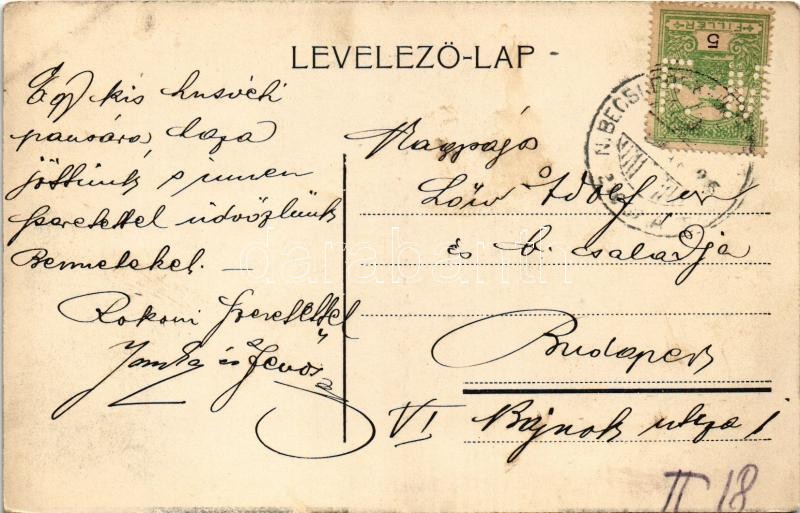 LEVELEZŐ-LAP
FILLÉR
5
N. BECSKEREK
Egy kis husvéti
pauzára haza
jöttünk s innen
szeretettel üdvözlünk
Benneteket. —
Rokoni szeretettel
Janka és Jenő
Nagyságos
Löw Adolf úr
és b. családja
Budapest
VI Bajnok utcza 1
II 18
darabanth